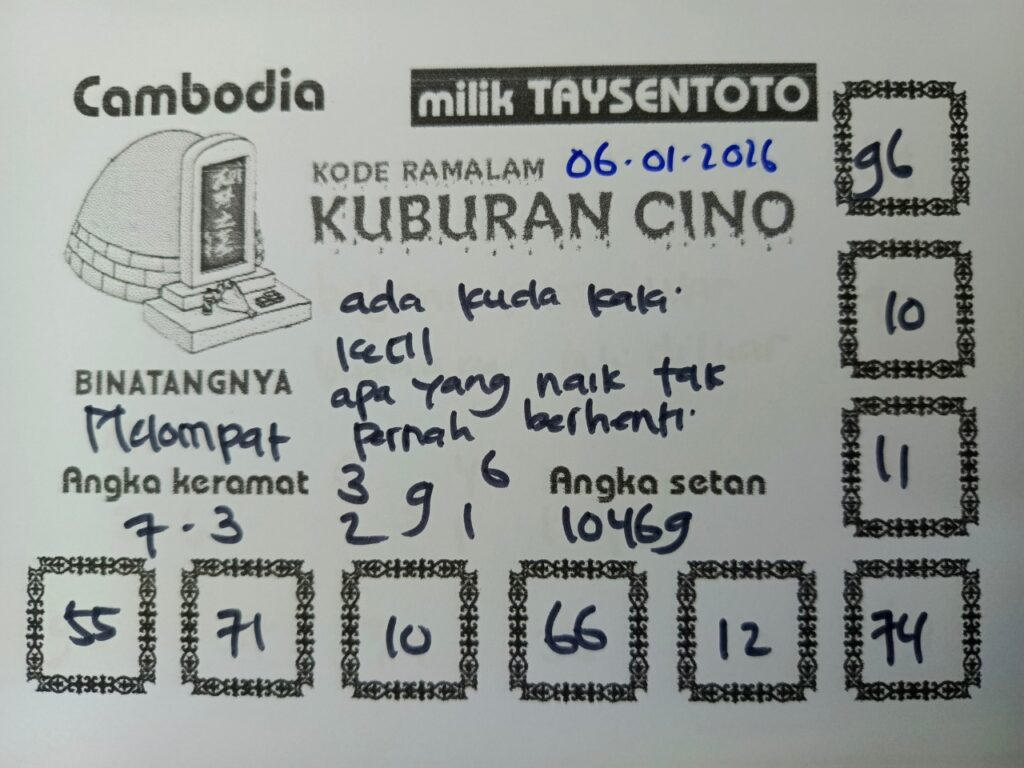 Cambodia
milik TAYSENTOTO
KODE RAMALAM 06.01.2026
KUBURAN CINO
96
10
11
ada kuda kaki
kecil
apa yang naik tak
pernah berhenti.
BINATANGNYA
Melompat
Angka keramat
7.3
3 9 6
2 1
Angka setan
10469
55 71 10 66 12 74